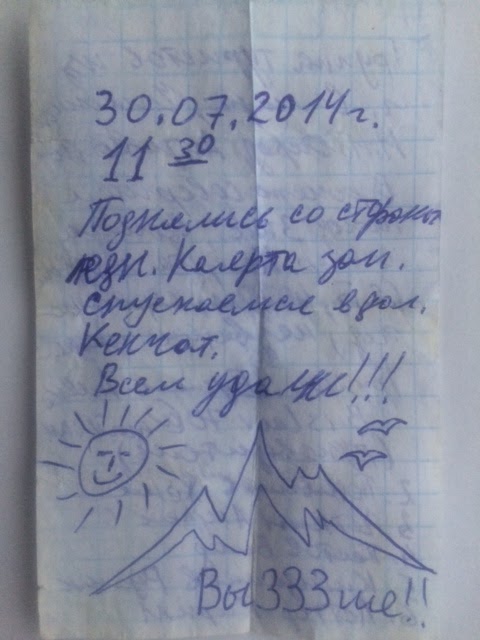 30.07.2014г.
11 30
Поднялись со стороны
ледн. Каярта зап.
спускаемся в дол.
Кенкол.
Всем удачи!!!
ВыЗЗЗше!!